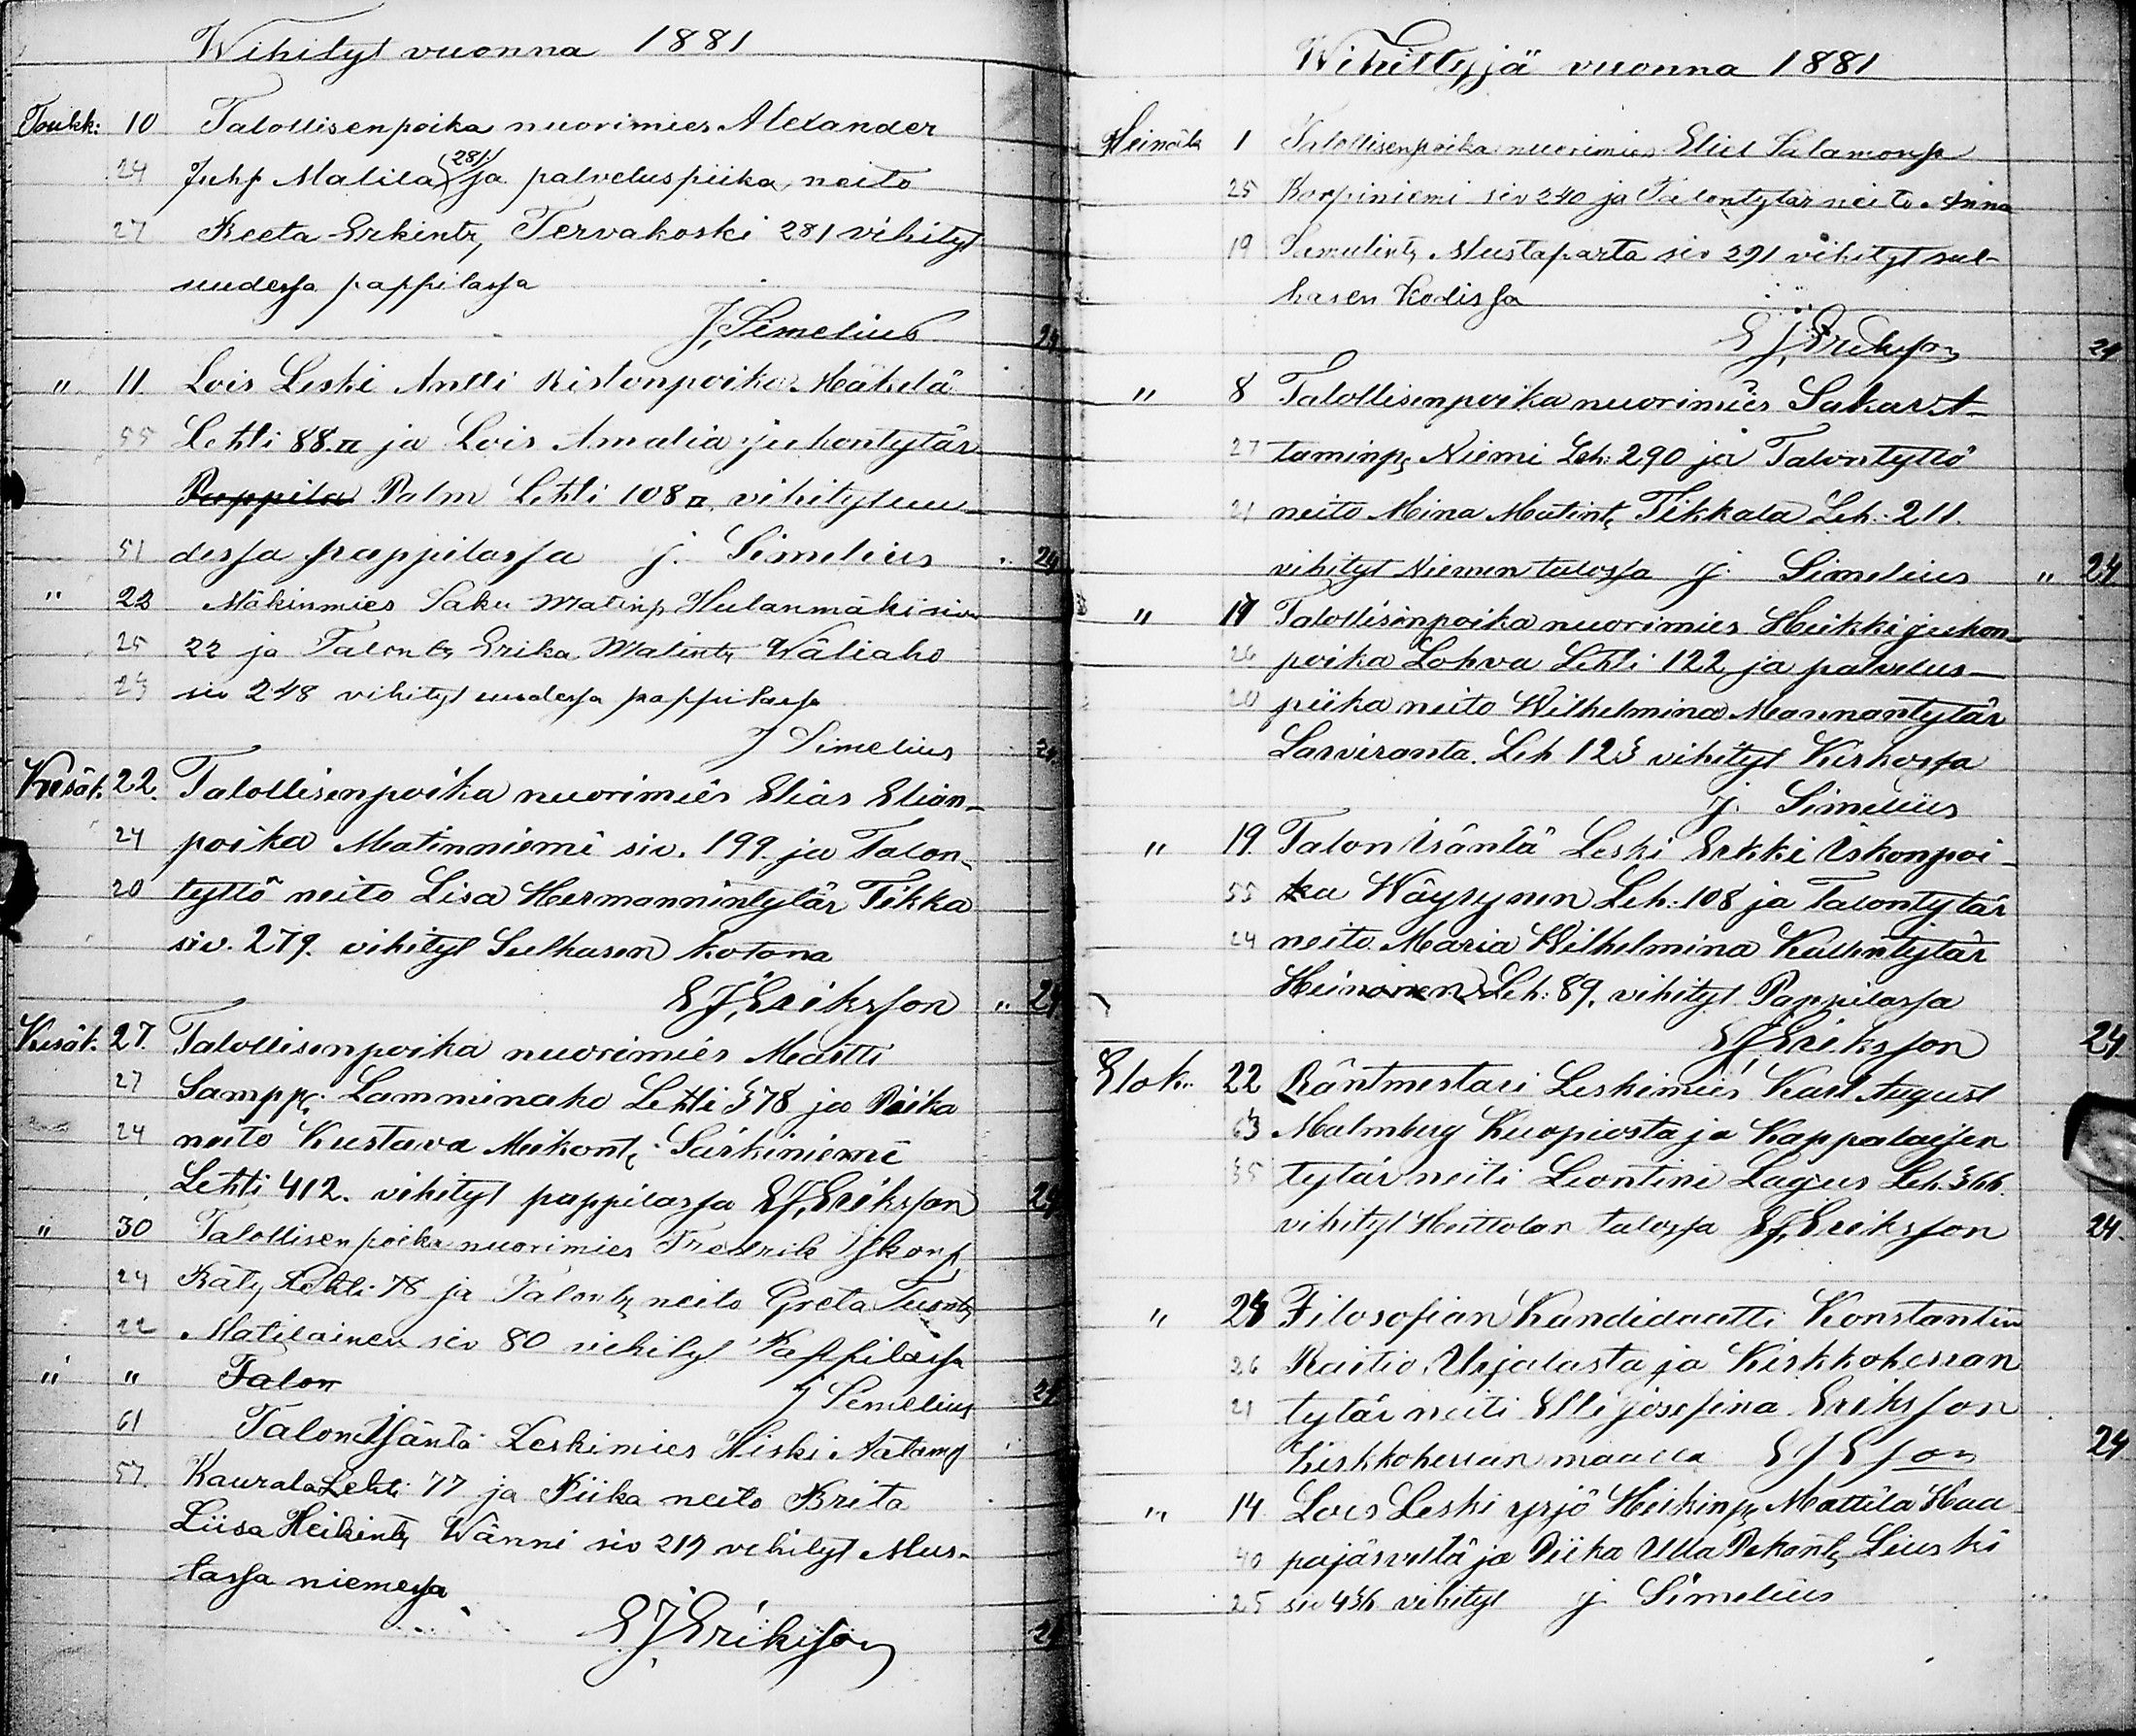 Wihityt vuonna 1881
Toukk: 10 Talollisenpoika nuorimies Alexander
24 Juhp Malila 281 ja palveluspiika neito
27 Reeta Erkintr, Tervakoski 281 vihityt
uudessa pappilassa
J. Simelius 24
" 11. Lois Leski Antti Ristonpoika Mäkelä
55 Lehti 88.a ja Lois Amalia Juhontytär
Pappila Palm Lehti 108 a, vihityt uu
51 dessa pappilassa J. Simelius " 24
" 22 Mäkinmies Saku Matinp Hulanmäki siv
25 22 ja Talontr Erika Matintr Wäliaho
23 siv 248 vihityt uudessa pappilassa
J Simelius 24.
Kesäk. 22. Talollisenpoika nuorimies Elias Elian-
24 poika Matinniemi siv. 199. ja Talon-
20 tyttö neito Lisa Hermannintytär Tikka
siv. 279. vihityt Sulhasen kotona
E J, Eriksson " 24
Kesäk. 27. Talollisenpoika nuorimies Martti
27 Sampp: Lamminaho Lehti 378 ja Piika
24 neito Kustava Mikont: Särkiniemi
Lehti 412. vihityt pappilassa E J, Eriksson 24
" 30 Talollisen poika nuorimies Fredrik Iskonp,
24 Räty Lehti 78 ja Talontr neito Greta
22 Matilainen siv 80 vihityt Pappilassa
" " Talon J Simelius 24
61 Talon Isäntä Leskimies Hiski Aatamp
57. Kaurala Lehti 77 ja Piika neito Brita
Liisa Heikintr Wänni siv 219 vihityt Mus-
tassa niemessa
E J Eriksson 24
Wihittyjä vuonna 1881
Heinäk 1 Talollisenpoika nuorimies Eliel Salamonp
25 Korpiniemi siv 240 ja Talontytär neito Anna
19 Samulintr Mustaparta siv 291 vihityt sul-
hasen Kodissa
E J, Eriksson 24
" 8 Talollisenpoika nuorimies Sakar At-
27 taminp, Niemi Leh: 290 ja Talontyttö
21 neito Mina Matint, Tikkala Leh: 211.
vihityt Niemen talossa J. Simelius " 24
" 17 Talollisenpoika nuorimies Heikki Juhon-
26 poika Lohva Lehti 122 ja palvelus-
20 piika neito Wilhelmina Mannantytär
Larviranta. Leh 123 vihityt Kirkossa
J. Simelius
" 19. Talon Isäntä Leski Erkki Iskonpoi-
55 ka Wäyrynen Leh: 108 ja Talontytär
24 neito Maria Wilhelmina Kallentytär
Heinonen Leh: 89, vihityt Pappilassa
E J, Eriksson 24
Elok: 22 Räntmestari Leskimies Karl August
63 Malmberg Kuopiosta ja Kappalaisen
35 tytär neiti Leontine Lagus Leh. 366.
vihityt Heittolan talossa E J, Eriksson 24.
" 24 Filosofian Kandidaatti Konstantin
26 Raitio, Urjalasta ja Kirkkoherran
21 tytär neiti Elli Josefina Eriksson
Kirkkoherran maalla E J Eson 24
" 14. Lois Leski Yrjö Heikinp, Mattila Haa
40 pajärveltä ja Piika Ulla Pekant, Liuski
25 siv 436 vihityt J. Simelius